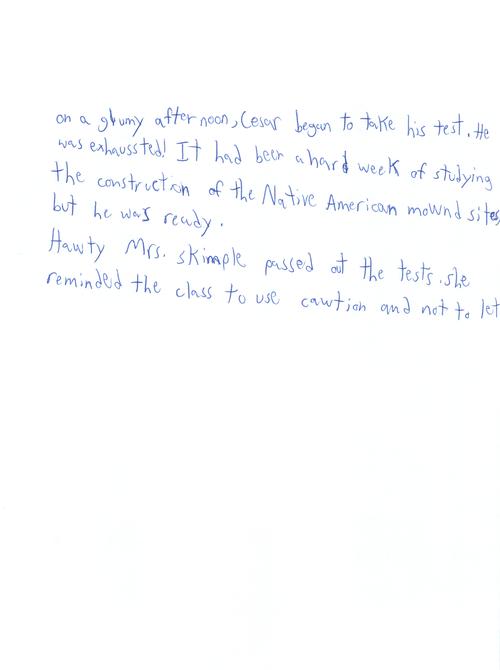 on a glumy afternoon, Cesar began to take his test. He
was exhaussted! It had been a hard week of studying
the construction of the Native American mownd sites,
but he was ready.
Hawty Mrs. skimple passed out the tests. she
reminded the class to use cawtion and not to let